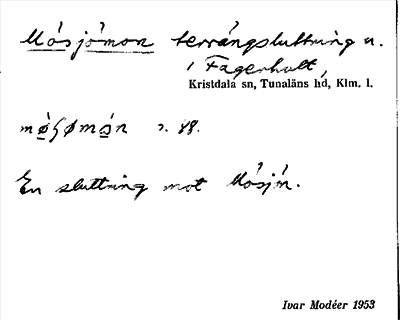 Måsjömon terrängsluttning u.
i Fagerhult,
Kristdala sn, Tunaläns hd, Klm. l.
En sluttning mot Måsjön.
Ivar Modéer 1953